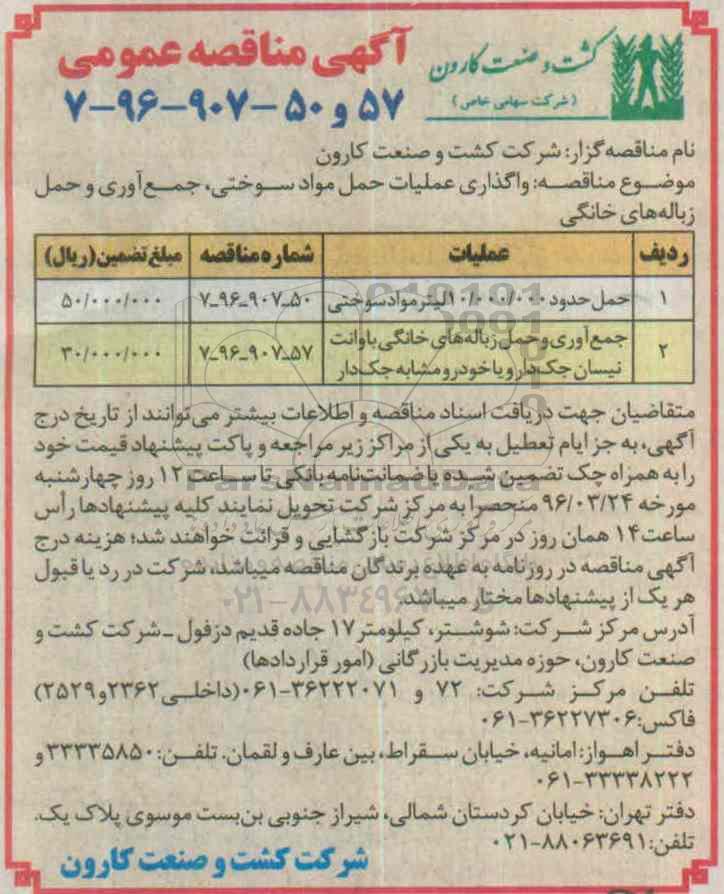 کشت و صنعت کارون
(شرکت سهامی خاص)
آگهی مناقصه عمومی
۵۷ و ۵۰-۹۰۷-۹۶-۷
نام مناقصه‌گزار: شرکت کشت و صنعت کارون
موضوع مناقصه: واگذاری عملیات حمل مواد سوختی، جمع‌آوری و حمل
زباله‌های خانگی
ردیف عملیات شماره مناقصه مبلغ تضمین (ریال)
۱ حمل حدود ۱۰/۰۰۰/۰۰۰ لیتر مواد سوختی ۵۰-۹۰۷-۹۶-۷ ۵۰/۰۰۰/۰۰۰
۲ جمع‌آوری و حمل زباله‌های خانگی با وانت
نیسان جک‌دار و یا خودرو مشابه جک‌دار ۵۷-۹۰۷-۹۶-۷ ۳۰/۰۰۰/۰۰۰
متقاضیان جهت دریافت اسناد مناقصه و اطلاعات بیشتر می‌توانند از تاریخ درج
آگهی، به جز ایام تعطیل به یکی از مراکز زیر مراجعه و پاکت پیشنهاد قیمت خود
را به همراه چک تضمین شده یا ضمانت‌نامه بانکی تا ساعت ۱۲ روز چهارشنبه
مورخه ۹۶/۰۳/۲۴ منحصرا به مرکز شرکت تحویل نمایند کلیه پیشنهادها رأس
ساعت ۱۴ همان روز در مرکز شرکت بازگشایی و قرائت خواهند شد؛ هزینه درج
آگهی مناقصه در روزنامه به عهده برندگان مناقصه میباشد، شرکت در رد یا قبول
هر یک از پیشنهادها مختار میباشد.
۰۲۱-۸۸۳۴۹۶۷۰
آدرس مرکز شرکت: شوشتر، کیلومتر ۱۷ جاده قدیم دزفول - شرکت کشت و
صنعت کارون، حوزه مدیریت بازرگانی (امور قراردادها)
تلفن مرکز شرکت: ۷۲ و ۳۶۲۲۲۰۷۱-۰۶۱ (داخلی ۲۳۶۲ و ۲۵۲۹)
فاکس: ۳۶۲۲۷۳۰۶-۰۶۱
دفتر اهواز: امانیه، خیابان سقراط، بین عارف و لقمان. تلفن: ۳۳۳۳۵۸۵۰ و
۳۳۳۳۸۲۲۲-۰۶۱
دفتر تهران: خیابان کردستان شمالی، شیراز جنوبی بن‌بست موسوی پلاک یک.
تلفن: ۸۸۰۶۳۶۹۱-۰۲۱
شرکت کشت و صنعت کارون